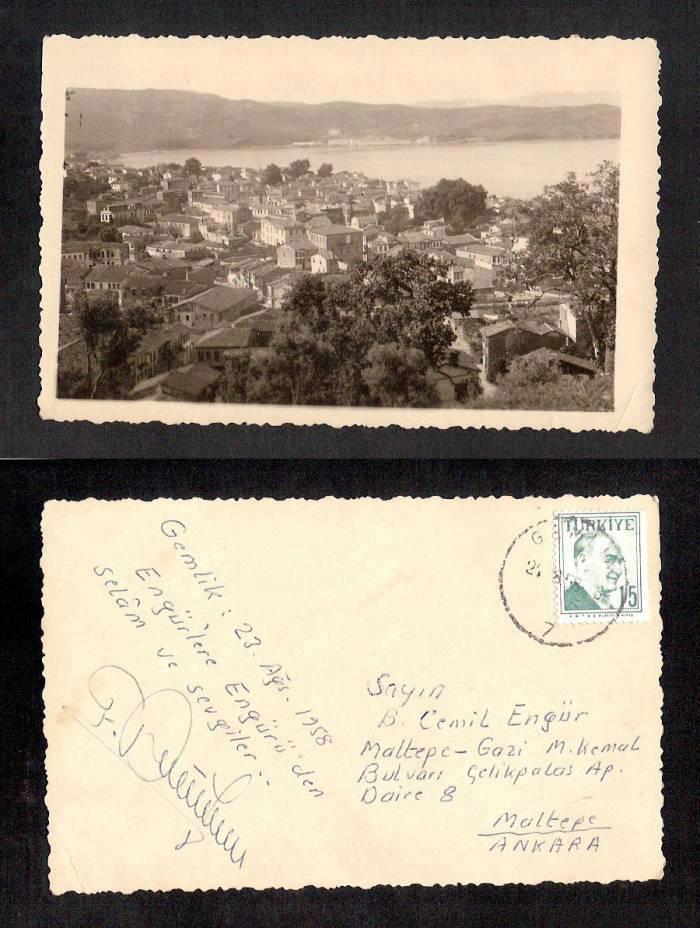 Gemlik : 23. Ağs. 1958
Engür'lere Engürü'den
selâm ve sevgiler..
TÜRKİYE
15
7
Sayın
B. Cemil Engür
Maltepe - Gazi M. Kemal
Bulvarı Çelikpalas Ap.
Daire 8
Maltepe
ANKARA